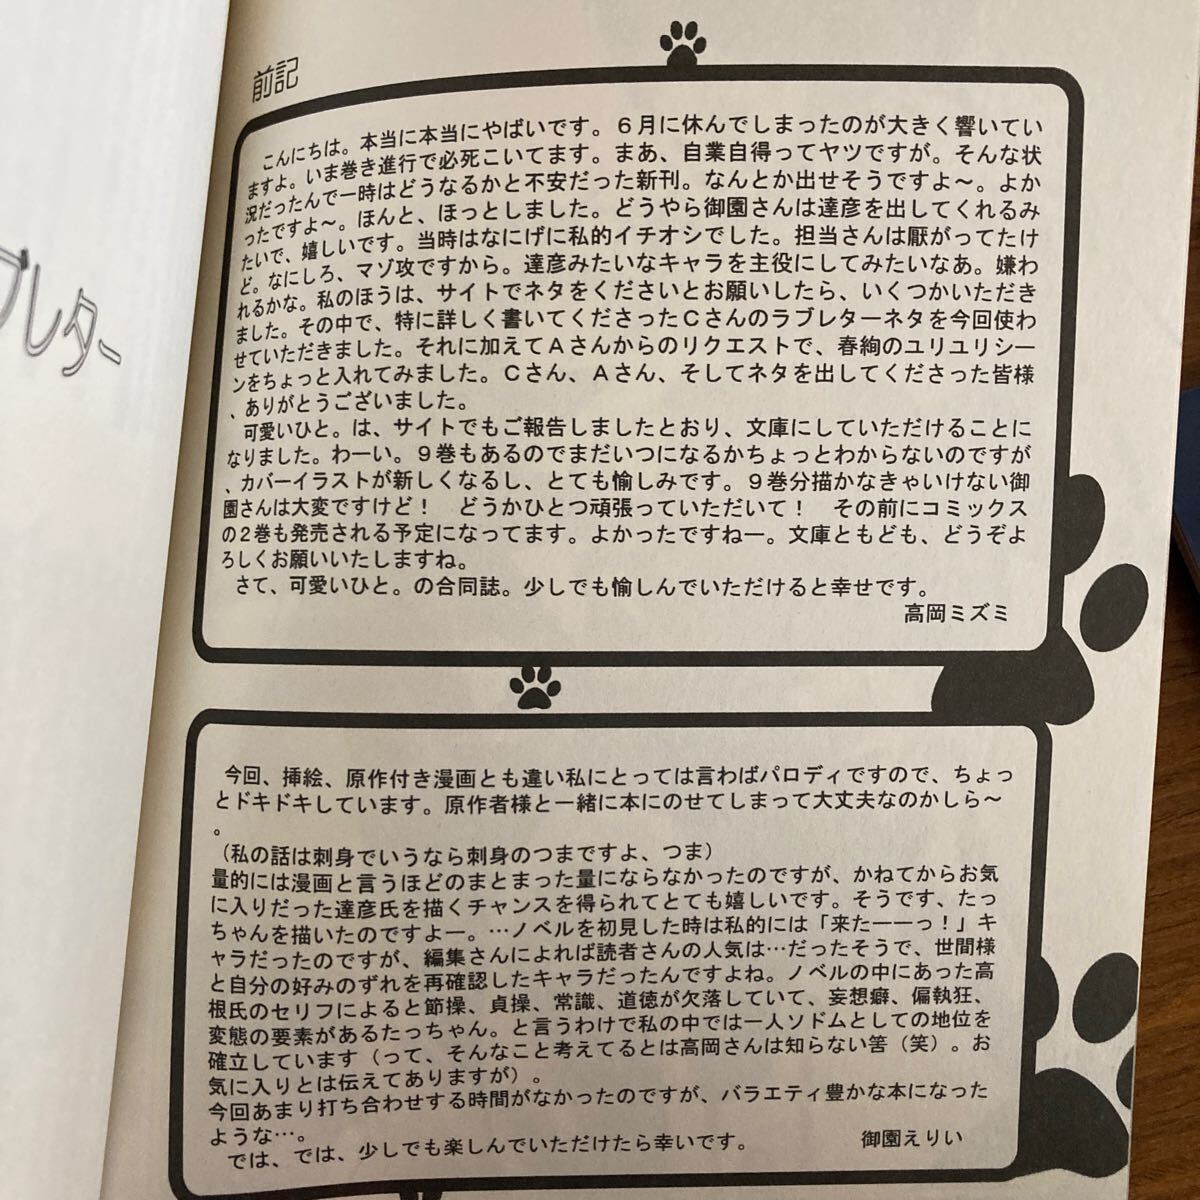 ブレター
前記
こんにちは。本当に本当にやばいです。６月に休んでしまったのが大きく響いてい
ますよ。いま巻き進行で必死こいてます。まあ、自業自得ってヤツですが。そんな状
況だったんで一時はどうなるかと不安だった新刊。なんとか出せそうですよ～。よか
ったですよ～。ほんと、ほっとしました。どうやら御園さんは達彦を出してくれるみ
たいで、嬉しいです。当時はなにげに私的イチオシでした。担当さんは厭がってたけ
ど。なにしろ、マゾ攻ですから。達彦みたいなキャラを主役にしてみたいなあ。嫌わ
れるかな。私のほうは、サイトでネタをくださいとお願いしたら、いくつかいただき
ました。その中で、特に詳しく書いてくださったＣさんのラブレターネタを今回使わ
せていただきました。それに加えてＡさんからのリクエストで、春絢のユリユリシー
ンをちょっと入れてみました。Ｃさん、Ａさん、そしてネタを出してくださった皆様
、ありがとうございました。
可愛いひと。は、サイトでもご報告しましたとおり、文庫にしていただけることに
なりました。わーい。９巻もあるのでまだいつになるかちょっとわからないのですが
、カバーイラストが新しくなるし、とても愉しみです。９巻分描かなきゃいけない御
園さんは大変ですけど！　どうかひとつ頑張っていただいて！　その前にコミックス
の２巻も発売される予定になってます。よかったですねー。文庫ともども、どうぞよ
ろしくお願いいたしますね。
さて、可愛いひと。の合同誌。少しでも愉しんでいただけると幸せです。
高岡ミズミ
今回、挿絵、原作付き漫画とも違い私にとっては言わばパロディですので、ちょっ
とドキドキしています。原作者様と一緒に本にのせてしまって大丈夫なのかしら～
。
（私の話は刺身でいうなら刺身のつまですよ、つま）
量的には漫画と言うほどのまとまった量にならなかったのですが、かねてからお気
に入りだった達彦氏を描くチャンスを得られてとても嬉しいです。そうです、たっ
ちゃんを描いたのですよー。…ノベルを初見した時は私的には「来たーーっ！」キ
ャラだったのですが、編集さんによれば読者さんの人気は…だったそうで、世間様
と自分の好みのずれを再確認したキャラだったんですよね。ノベルの中にあった高
根氏のセリフによると節操、貞操、常識、道徳が欠落していて、妄想癖、偏執狂、
変態の要素があるたっちゃん。と言うわけで私の中では一人ソドムとしての地位を
確立しています（って、そんなこと考えてるとは高岡さんは知らない筈（笑）。お
気に入りとは伝えてありますが）。
今回あまり打ち合わせする時間がなかったのですが、バラエティ豊かな本になった
ような…。
では、では、少しでも楽しんでいただけたら幸いです。
御園えりい